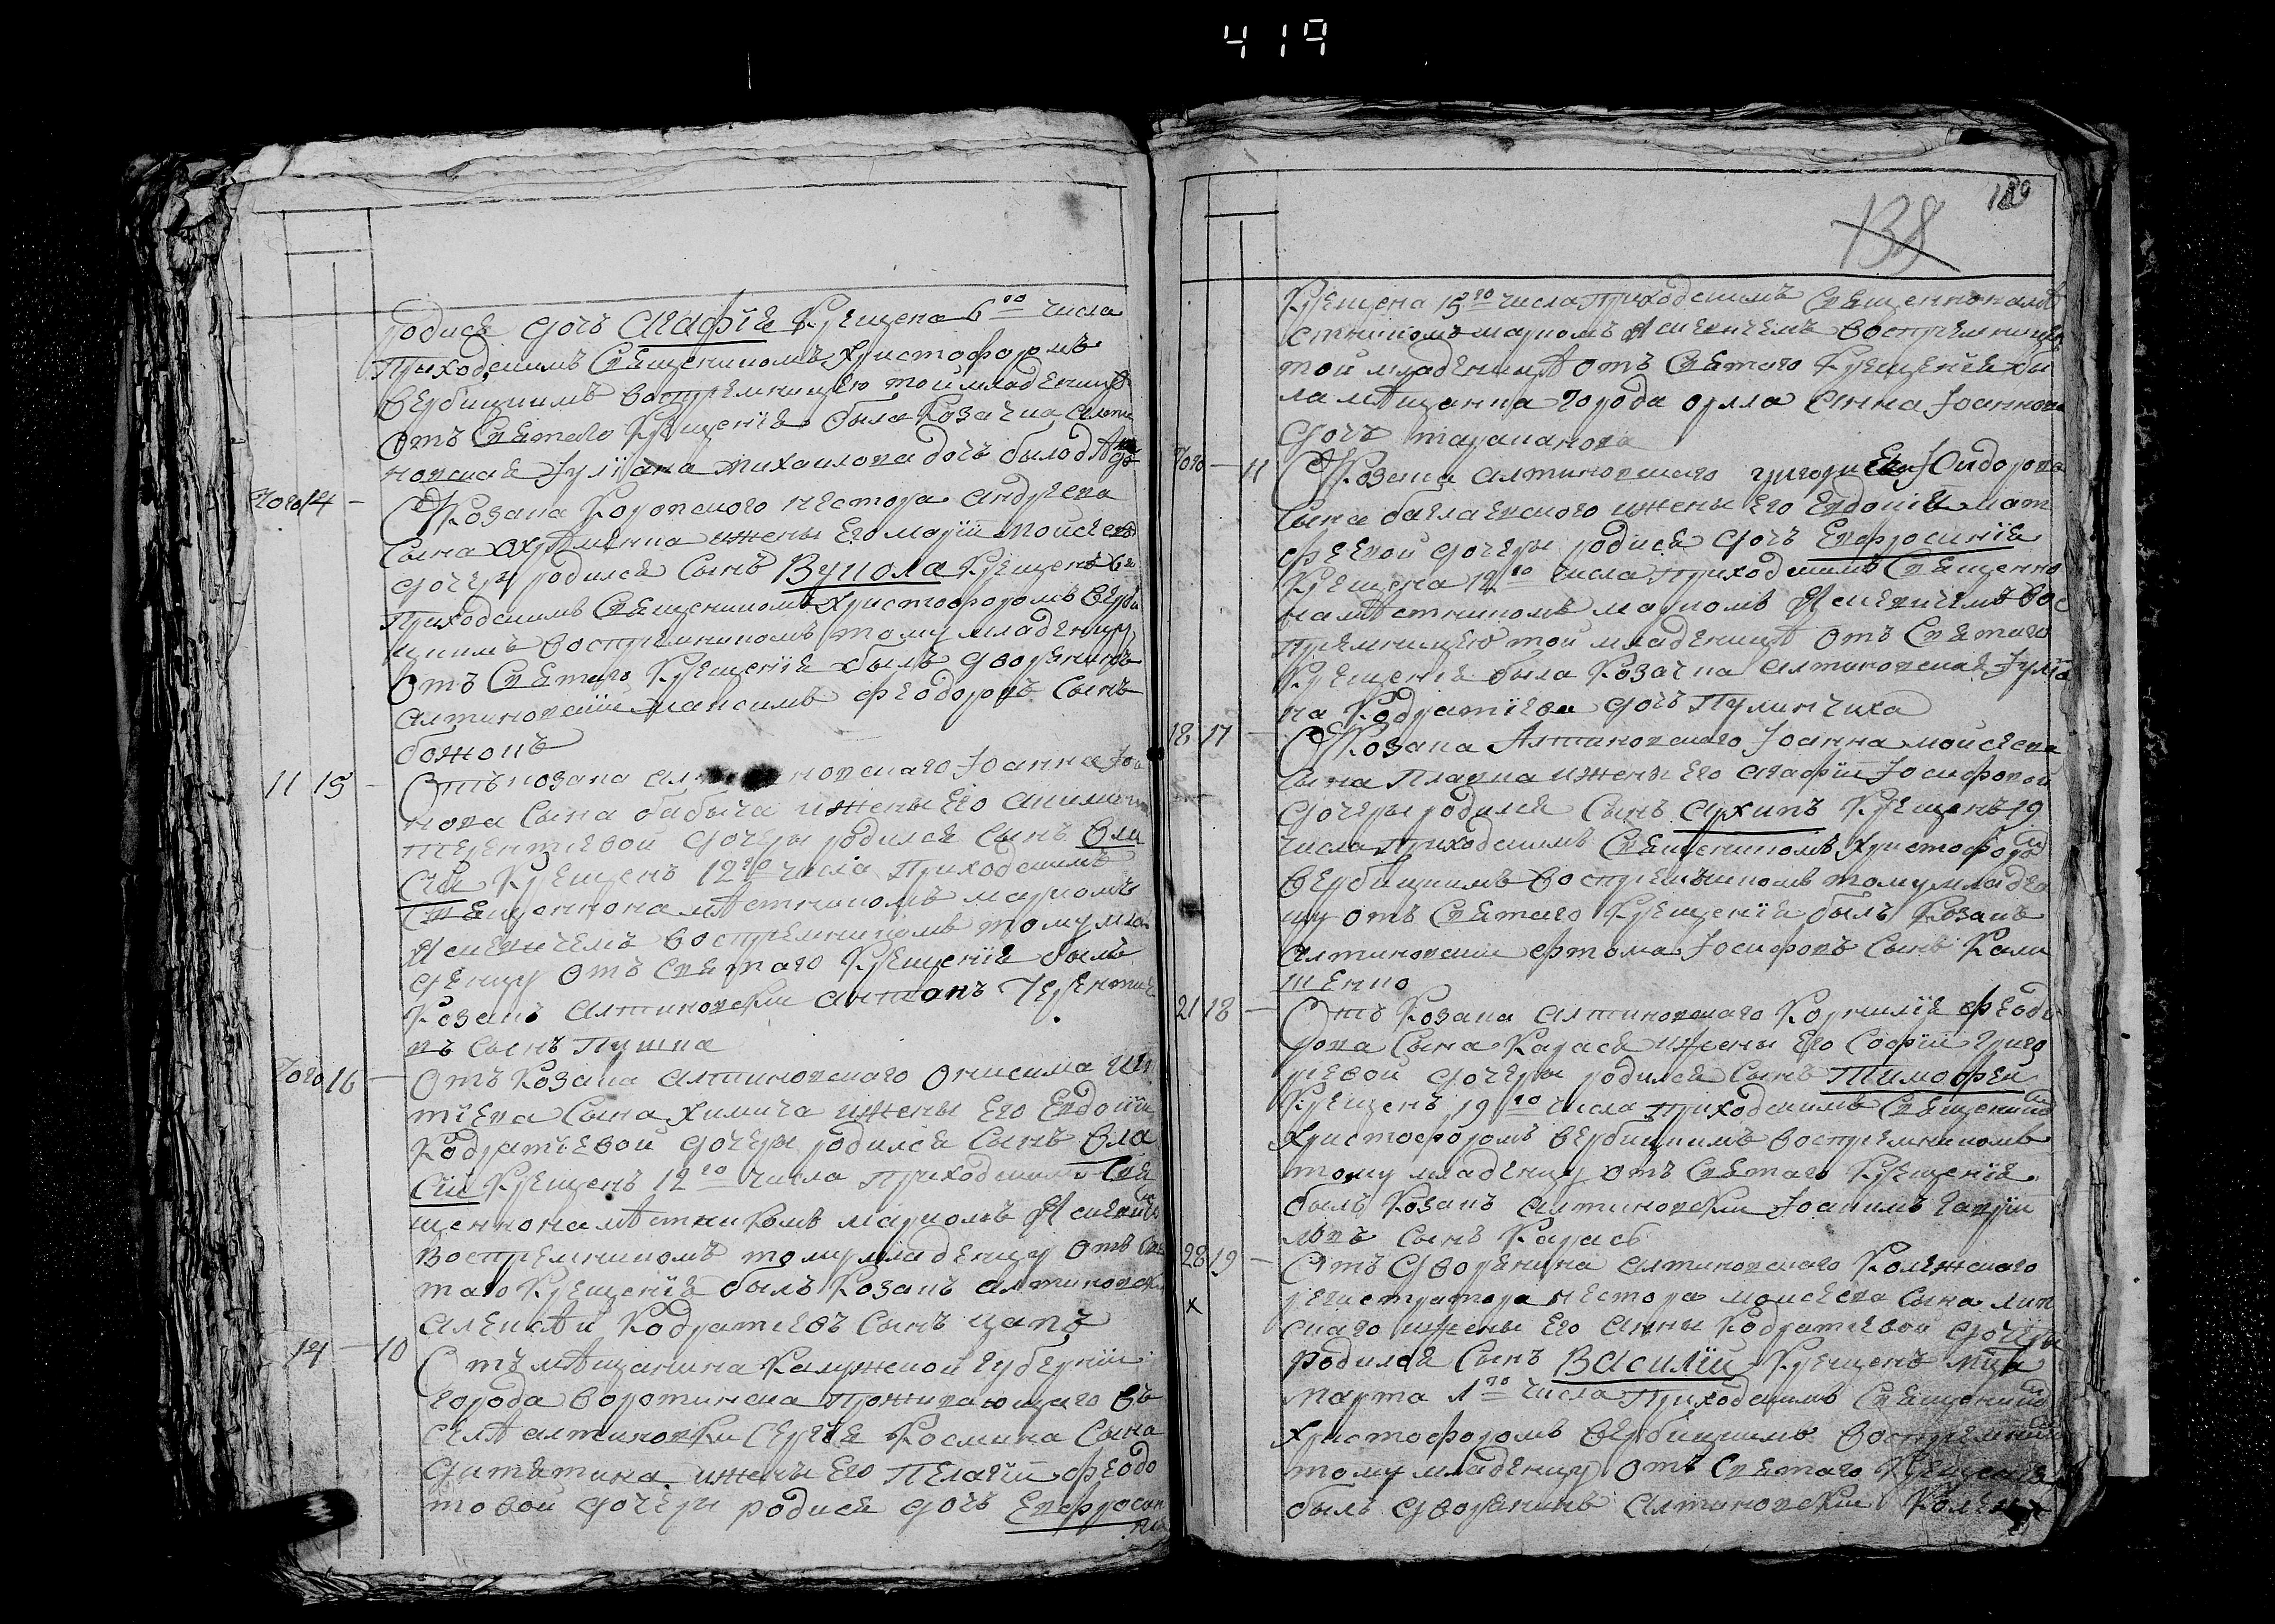 419
родися дочь Агафія Крещена 6го числа
Приходскимъ Священникомъ Христофоромъ
Вербицкимъ восприемницею той младеницѣ
Отъ Святаго Крещенія была Козачка алти
новская Іуліана михаилова дочь
Того 14 Козака Коропского нестора Андреева
Сына ижены Его маріи мойсеевой
дочери родился Сынъ Вукола Крещенъ
Приходскимъ Священникомъ Христофоромъ Верби
цкимъ восприемникомъ тому младенцу
Отъ Святаго Крещенія былъ дворенинъ
алтиновскій максимъ феодоровъ Сынъ
божокъ
11 15 Отъ козака алтиновскаго Іоанна
нова Сына бабыча ижены Его акилины
терентиевой дочери родился Сынъ Вла
сій Крещенъ 12го числа Приходскимъ
Священнонамѣстникомъ маркомъ
Яскевичемъ восприемникомъ тому мла
денцу Отъ Святаго Крещенія былъ
Козакъ Алтиновскій антонъ Терентие
въ Сынъ Пушка
Того 16 Отъ Козака Алтиновскаго Онисима
тіева Сына химича ижены Его Евдокіи
Кодратѣевой дочери родился Сынъ Вла
сій Крещенъ 12го числа Приходскимъ Свя
щеннонамѣстникомъ маркомъ Яскевичемъ
Восприемникомъ тому младенцу Отъ Свя
таго Крещенія былъ Козакъ алтиновск
Алексѣй Кодратиевъ Сынъ цапъ
14 10 Отъ мѣщанина Калужской губерніи
города Воротинска Проживающаго въ
селѣ алтиновки Сергѣя Космина Сына
ижены Его Пелагіи феодо
товой дочери родися дочь Евфросин
нія
138
Крещена 15го числа Приходскимъ Священнонамѣ
стникомъ маркомъ Яскевичемъ восприемницею
той младеницѣ отъ Святого Крещенія бы
ла мѣщанка города орла Анна Іоаннова
дочь тараканова
Того 11 Козака Алтиновскаго григорія Ісидорова
Сына баглаевского ижены Его Евдокіи мат
феевой дочери родися дочь Евфросинія
Крещена 12го числа Приходскимъ Священно
намѣстникомъ маркомъ Яскевичемъ вос
приемницею той младеницѣ Отъ Святаго
Крещенія была Козачка Алтиновская Іуліа
на Кодратіева дочь Пулинчиха
18 17 Козака Алтиновскаго Іоанна мойсеева
Сына ижены Его Агафіи Іосифовой
дочери родился Сынъ Архипъ Крещенъ 19
числа Приходскимъ Священникомъ Христофоромъ
Вербицкимъ восприемникомъ тому младен
цу отъ Святаго Крещенія былъ Козакъ
Алтиновскій фтома Іосифовъ Сынъ Кали
шенко
21 18 Отъ Козака Алтиновскаго Корнилія феодо
рова Сына Карася ижены Его Софіи григо
риевой дочери родился Сынъ Тимофей
Крещенъ 19го числа Приходскимъ Священником
Христофоромъ вербицкимъ восприемникомъ
тому младенцу отъ Святаго Крещенія
былъ Козакъ Алтиновскій Іоакимъ гаврии
ловъ Сынъ Карась
28 19 Отъ Дворенина Алтиновскаго Колежскаго
х регистратора нестора моисеева Сына лип
скаго ижены Его Анны Кодратиевой дочери
родился Сынъ Василій Крещенъ мца
марта 1го числа Приходскимъ Священником
Христофоромъ вербицкимъ восприемником
тому младенцу отъ Святаго Крещенія
былъ дворенинъ Алтиновскій Колеж